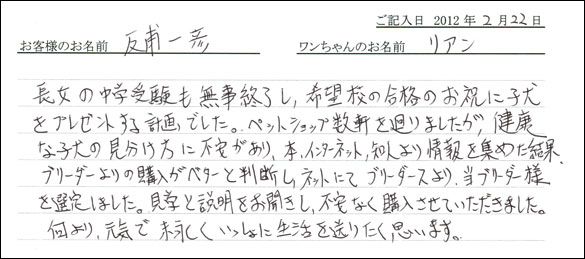 ご記入日 2012年2月22日
お客様のお名前 反甫一彦 ワンちゃんのお名前 リアン
長女の中学受験も無事終了し、希望校の合格のお祝に子犬
をプレゼントする計画でした。ペットショップ数軒を廻りましたが、健康
な子犬の見分け方に不安があり、本、インターネット、知人より情報を集めた結果、
ブリーダーよりの購入がベターと判断し、ネットにてブリーダースより、当ブリーダー様
を選定しました。見学と説明をお聞きし、不安なく購入させていただきました。
何より、元気で末永くいっしょに生活を送りたく思います。